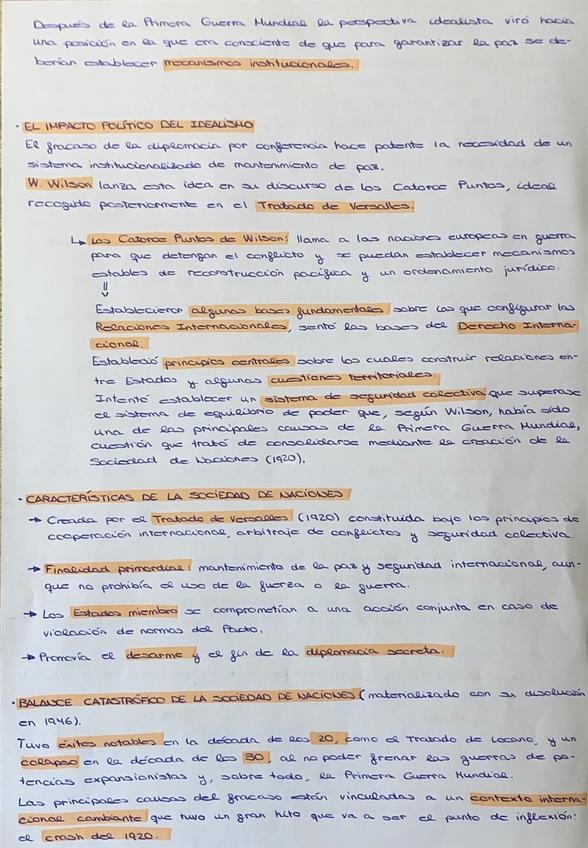 Después de la Primera Guerra Mundial la perspectiva idealista viró hacia
una posición en la que era consciente de que para garantizar la paz se de-
berían establecer mecanismos institucionales.
· EL IMPACTO POLÍTICO DEL IDEALISMO
El fracaso de la diplomacia por conferencia hace patente la necesidad de un
sistema institucionalizado de mantenimiento de paz.
W. Wilson lanza esta idea en su discurso de los Catorce Puntos, ideal
recogido posteriormente en el Tratado de Versalles.
↳ Los Catorce Puntos de Wilson: llama a las naciones europeas en guerra
para que detengan el conflicto y se puedan establecer mecanismos
estables de reconstrucción pacífica y un ordenamiento jurídico.
⇓
Establecieron algunas bases fundamentales sobre las que configurar las
Relaciones Internacionales, sentó las bases del Derecho Interna-
cional.
Estableció principios centrales sobre los cuales construir relaciones en-
tre Estados y algunas cuestiones territoriales.
Intentó establecer un sistema de seguridad colectiva que superase
el sistema de equilibrio de poder que, según Wilson, había sido
una de las principales causas de la Primera Guerra Mundial,
cuestión que trató de consolidarse mediante la creación de la
Sociedad de Naciones (1920).
· CARACTERÍSTICAS DE LA SOCIEDAD DE NACIONES
→ Creada por el Tratado de Versalles (1920) constituida bajo los principios de
cooperación internacional, arbitraje de conflictos y seguridad colectiva.
→ Finalidad primordial: mantenimiento de la paz y seguridad internacional, aun-
que no prohibía el uso de la fuerza o la guerra.
→ Los Estados miembro se comprometían a una acción conjunta en caso de
violación de normas del Pacto.
→ Promovía el desarme y el fin de la diplomacia secreta.
· BALANCE CATASTRÓFICO DE LA SOCIEDAD DE NACIONES (materializado con su disolución
en 1946).
Tuvo éxitos notables en la década de los 20, como el Tratado de Locarno, y un
colapso en la década de los 30, al no poder frenar las guerras de po-
tencias expansionistas y, sobre todo, la Primera Guerra Mundial.
Las principales causas del fracaso están vinculadas a un contexto interna-
cional cambiante que tuvo un gran hito que va a ser el punto de inflexión:
el crash del 1920.